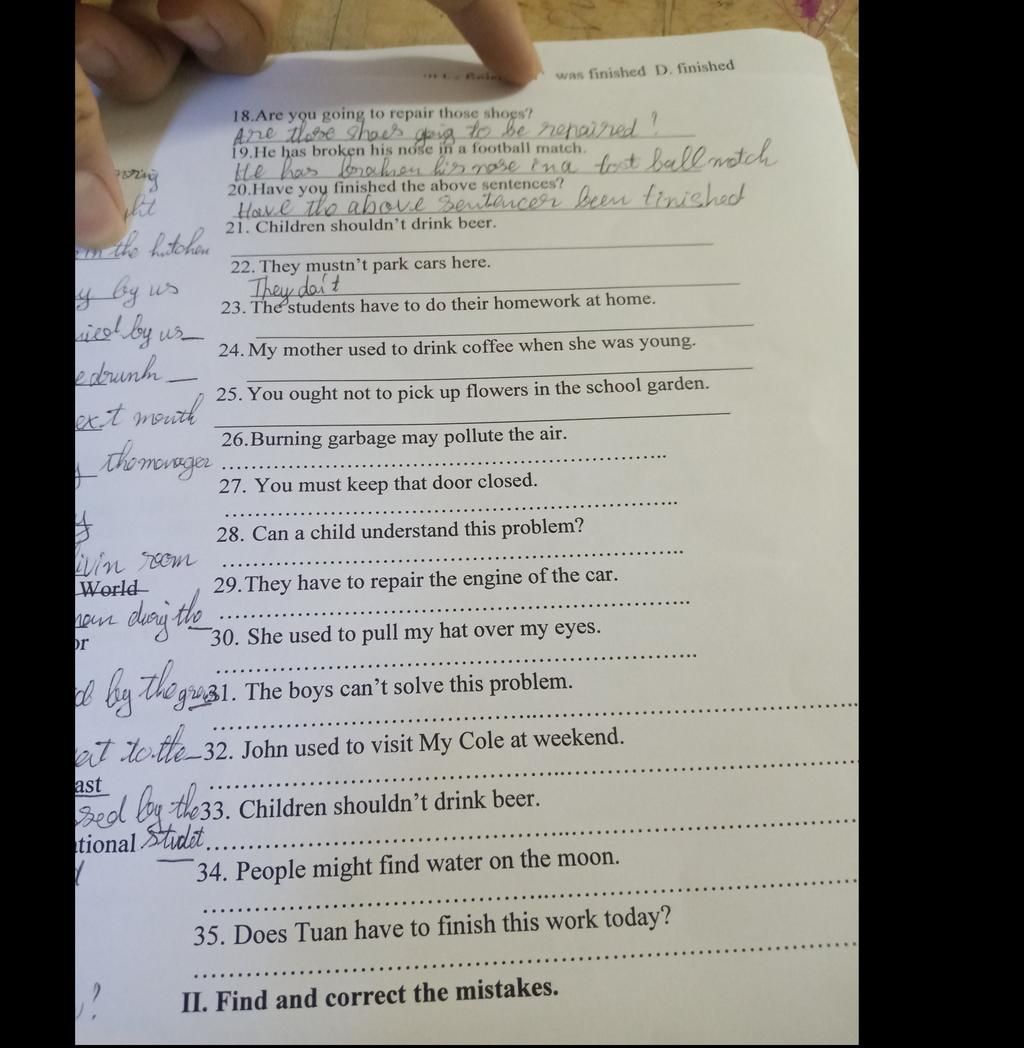 was finished D. finished
18.Are you going to repair those shoes?
Are those shoes going to be repaired ?
19.He has broken his nose in a football match.
He has broken his nose in a foot ball match
20.Have you finished the above sentences?
Have the above sentences been finished
21. Children shouldn't drink beer.
in the kitchen
22. They mustn't park cars here.
by us
They don't
23. The students have to do their homework at home.
by us
24. My mother used to drink coffee when she was young.
25. You ought not to pick up flowers in the school garden.
26.Burning garbage may pollute the air.
the manager
27. You must keep that door closed.
28. Can a child understand this problem?
room
29.They have to repair the engine of the car.
World
30. She used to pull my hat over my eyes.
31. The boys can't solve this problem.
by the
32. John used to visit My Cole at weekend.
to the
33. Children shouldn't drink beer.
by the
34. People might find water on the moon.
35. Does Tuan have to finish this work today?
II. Find and correct the mistakes.
?